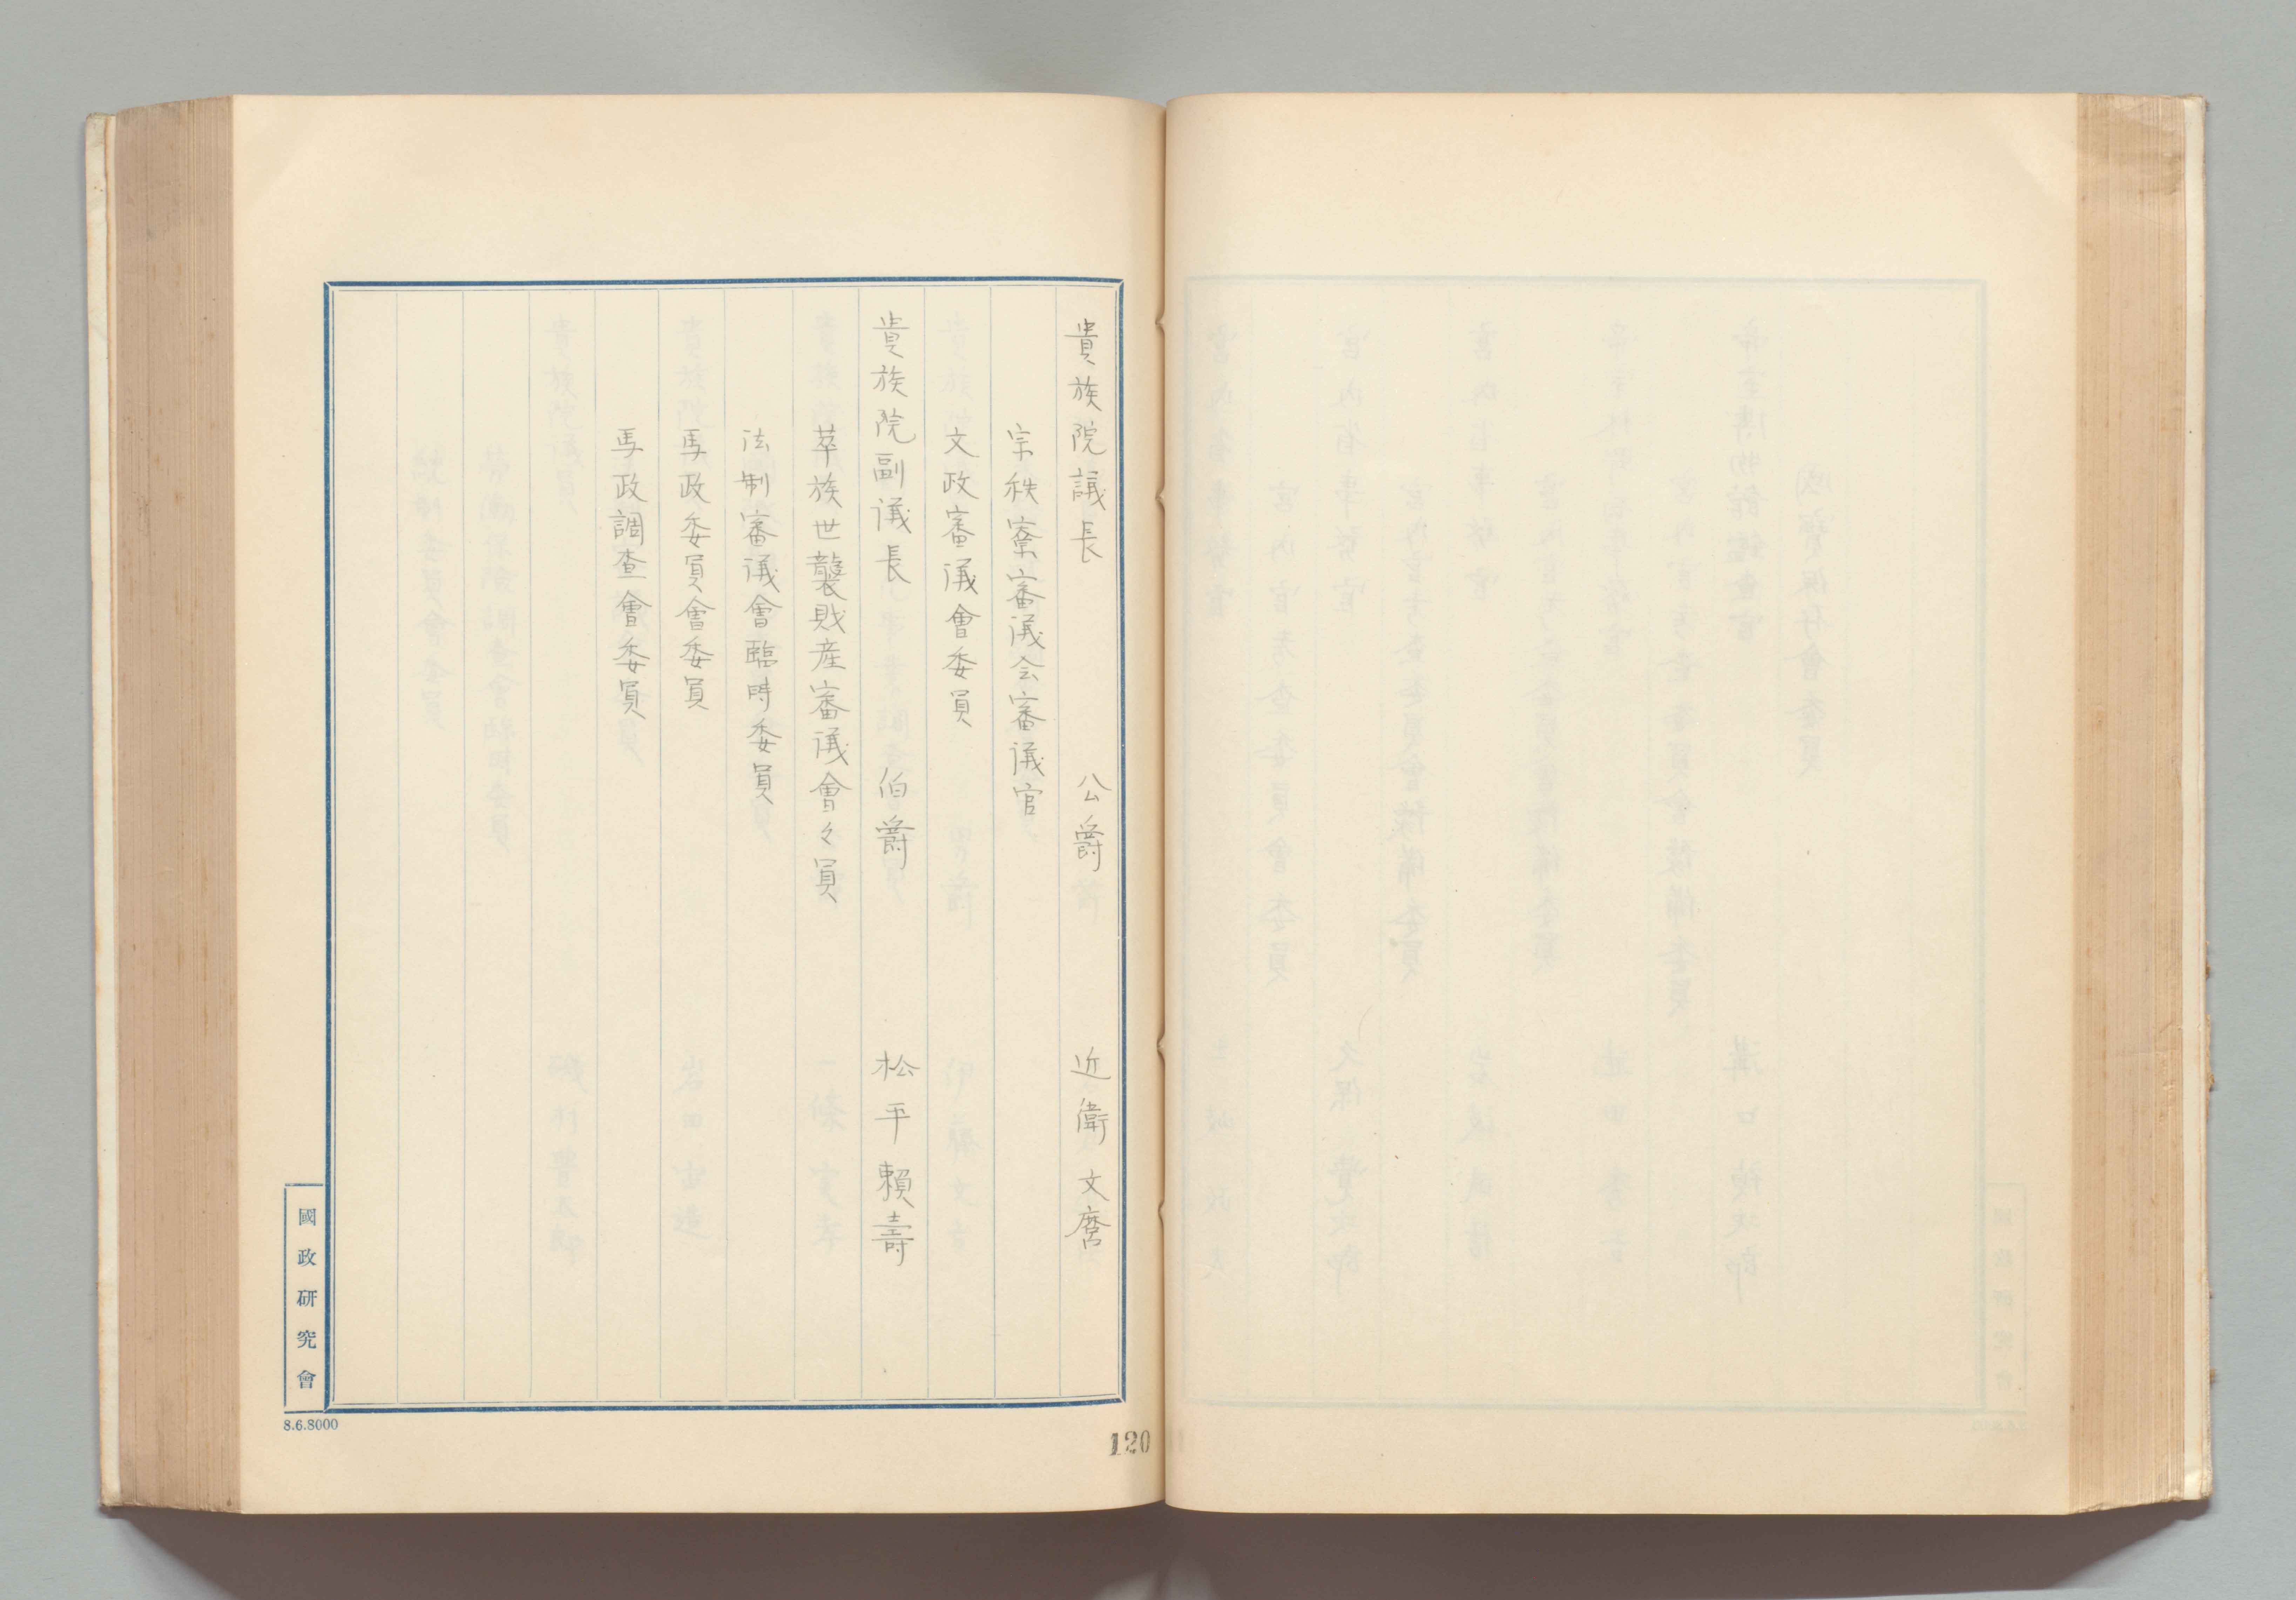 貴族院議長 公爵 近衛文麿
宗秩寮審議会審議官
文政審議會委員
貴族院副議長 伯爵 松平頼壽
華族世襲財産審議會々員
法制審議會臨時委員
馬政委員會委員
馬政調査會委員
國政研究會
8.6.8000
120